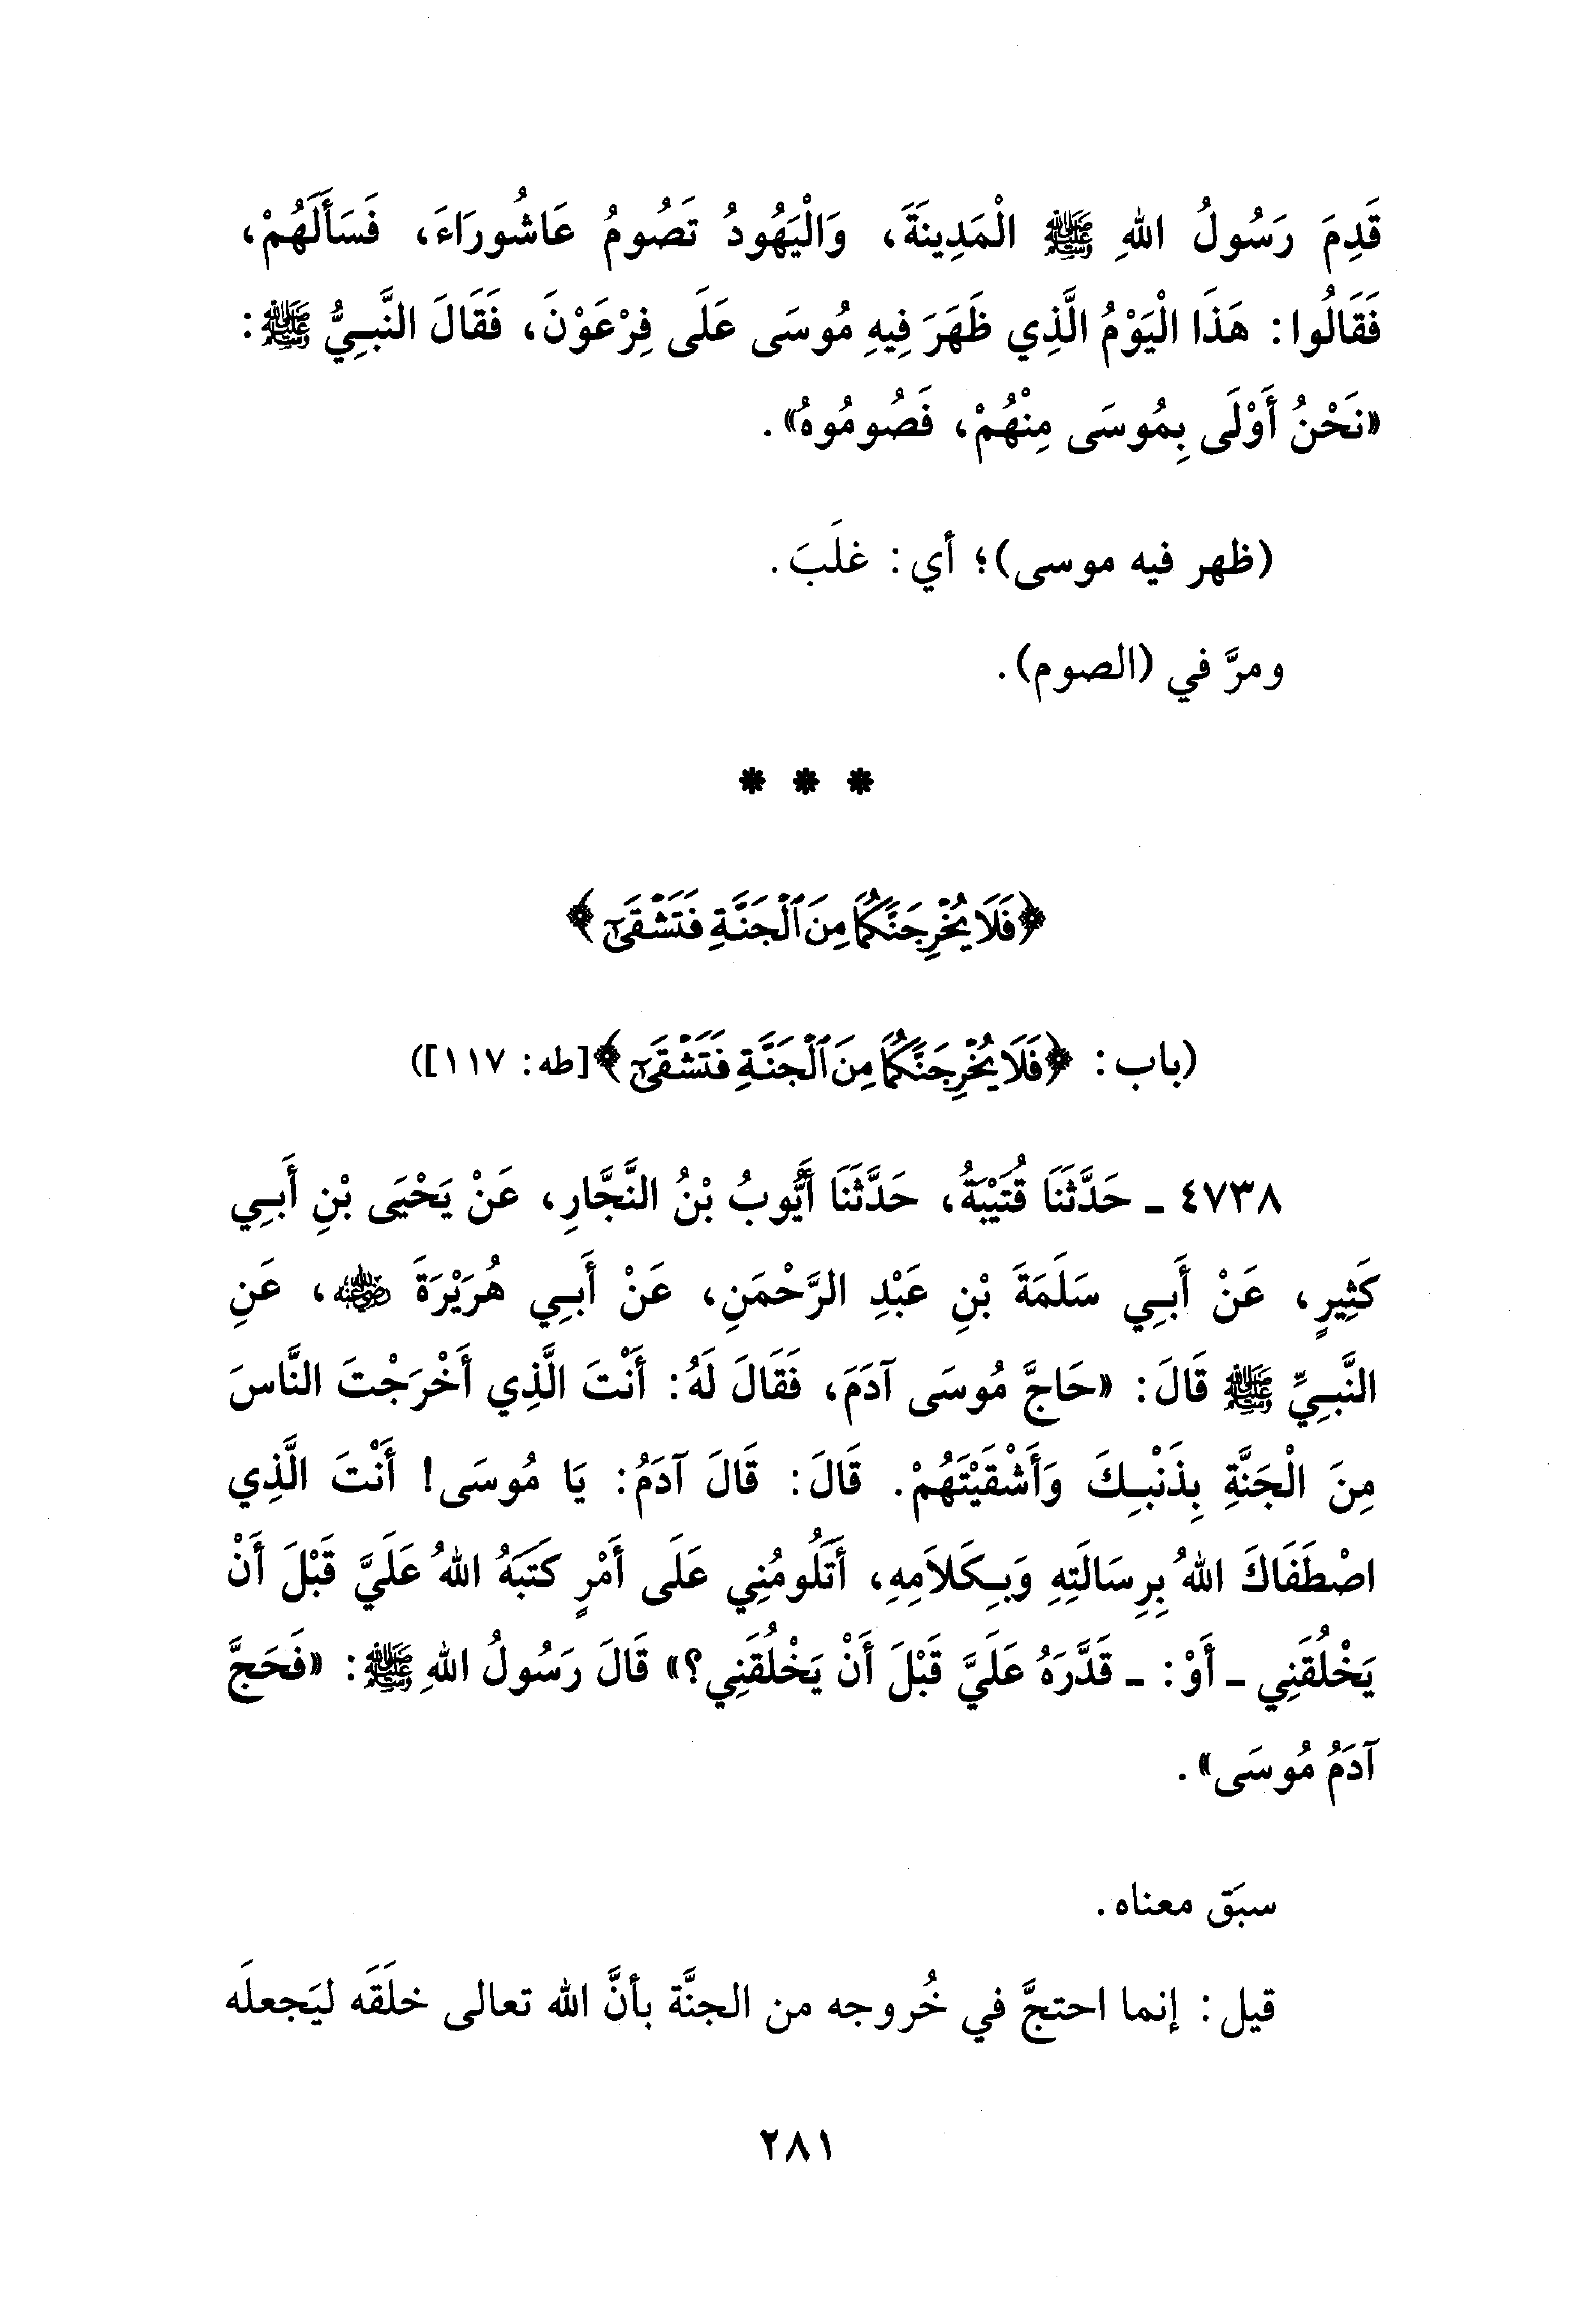 قَدِمَ رَسُولُ اللهِ ﷺ الْمَدِينَةَ، وَالْيَهُودُ تَصُومُ عَاشُورَاءَ، فَسَأَلَهُمْ،
فَقَالُوا: هَذَا الْيَوْمُ الَّذِي ظَهَرَ فِيهِ مُوسَى عَلَى فِرْعَوْنَ، فَقَالَ النَّبِيُّ ﷺ:
«نَحْنُ أَوْلَى بِمُوسَى مِنْهُمْ، فَصُومُوهُ».
(ظهر فيه موسى)؛ أي: غلَبَ.
ومرَّ في (الصوم).
* * *
﴿فَلَا يُخْرِجَنَّكُمَا مِنَ ٱلْجَنَّةِ فَتَشْقَىٰٓ﴾
(باب: ﴿فَلَا يُخْرِجَنَّكُمَا مِنَ ٱلْجَنَّةِ فَتَشْقَىٰٓ﴾[طه: ١١٧])
٤٧٣٨ - حَدَّثَنَا قُتَيْبَةُ، حَدَّثَنَا أَيُّوبُ بْنُ النَّجَّارِ، عَنْ يَحْيَى بْنِ أَبِي
كَثِيرٍ، عَنْ أَبِي سَلَمَةَ بْنِ عَبْدِ الرَّحْمَنِ، عَنْ أَبِي هُرَيْرَةَ رضي الله عنه، عَنِ
النَّبِيِّ ﷺ قَالَ: «حَاجَّ مُوسَى آدَمَ، فَقَالَ لَهُ: أَنْتَ الَّذِي أَخْرَجْتَ النَّاسَ
مِنَ الْجَنَّةِ بِذَنْبِكَ وَأَشْقَيْتَهُمْ. قَالَ: قَالَ آدَمُ: يَا مُوسَى! أَنْتَ الَّذِي
اصْطَفَاكَ اللهُ بِرِسَالَتِهِ وَبِكَلاَمِهِ، أَتَلُومُنِي عَلَى أَمْرٍ كَتَبَهُ اللهُ عَلَيَّ قَبْلَ أَنْ
يَخْلُقَنِي - أَوْ: - قَدَّرَهُ عَلَيَّ قَبْلَ أَنْ يَخْلُقَنِي؟» قَالَ رَسُولُ اللهِ ﷺ: «فَحَجَّ
آدَمُ مُوسَى».
سبَق معناه.
قيل: إنما احتجَّ في خُروجه من الجنَّة بأنَّ الله تعالى خلَقَه ليَجعلَه
٢٨١